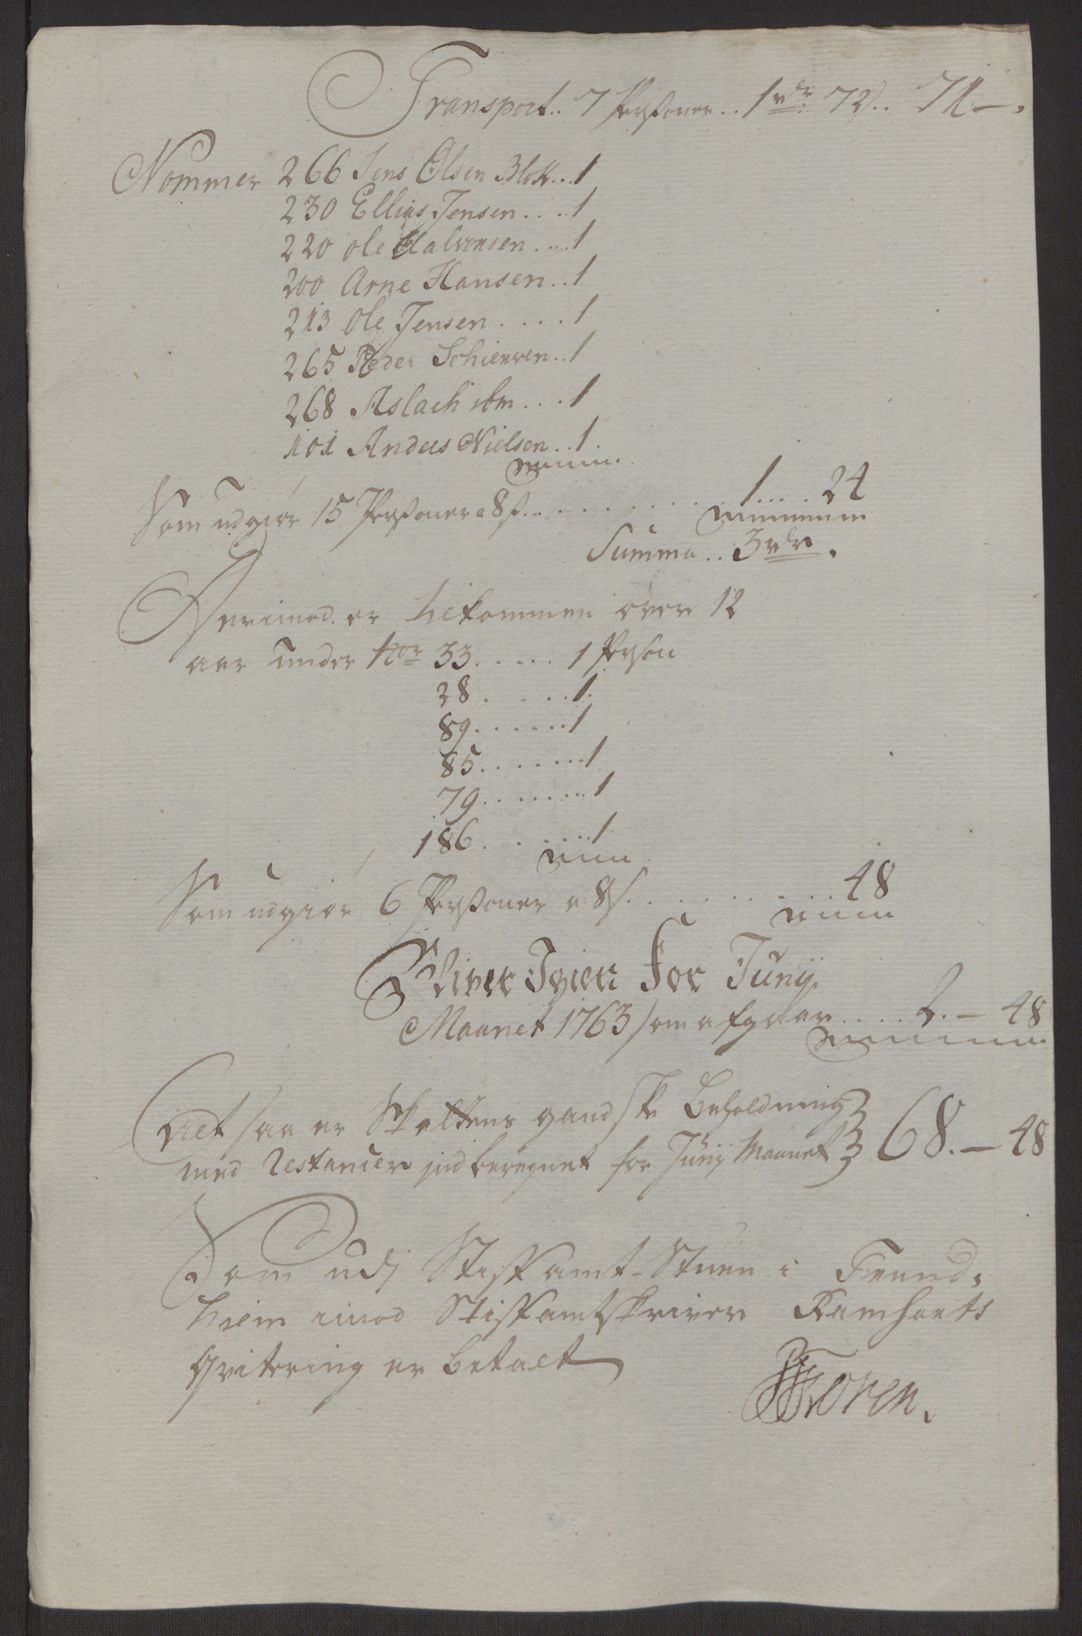 Transport.. 7 Persohner.. 1 rdr 72.. 71 —.
Nommer 266 Jens Olsen Blek... 1
230 Ellias Jensen.... 1
220 ole Halvensen.... 1
200 Arne Hansen.. 1
213 Ole Jensen..... 1
265 Peder Schierven.. 1
268 Aslach ibm... 1
101 Anders Nielsen.. 1.
Som udgiør 15 Persohner a 8 s......... 1.... 24
Summa.. 3 rdr.
Derimod er bekommen over 12
aar under No 33..... 1 Person
28..... 1.
89...... 1
85....... 1
79....... 1
186...... 1
Som udgiør 6 Persohner a 8 s.......... 48
Bliver Igien For Junij
Maanet 1763 som afgaar.... 2. — 48
Alt saa er Skattens gandske Beholdning
med Restancer ind beregnet for Junij Maanet 68. — 48
Som udj Stiftamt-Stuen i Trond-
hiem imod Stiftamtskriver Ramsharts
Qvitering er betalt
Storen.